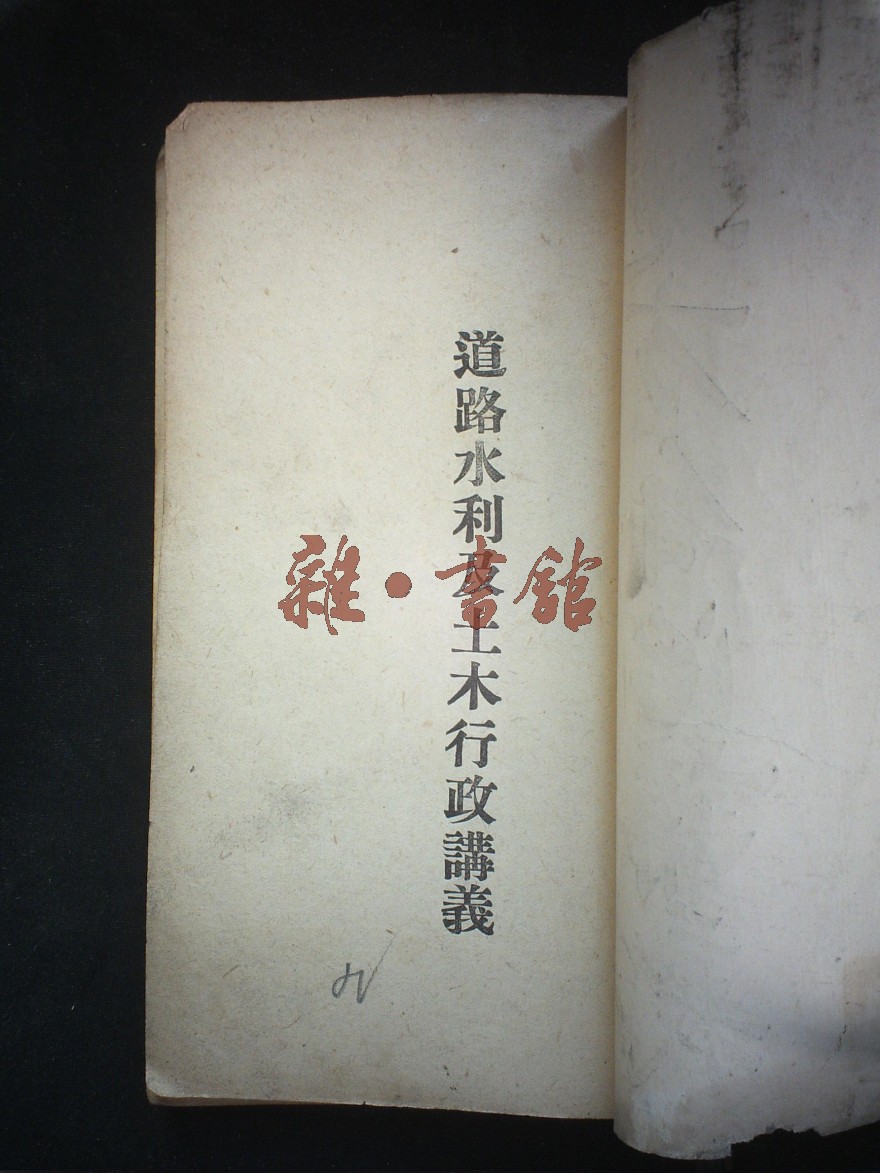 道路水利及土木行政講義
雜·書館